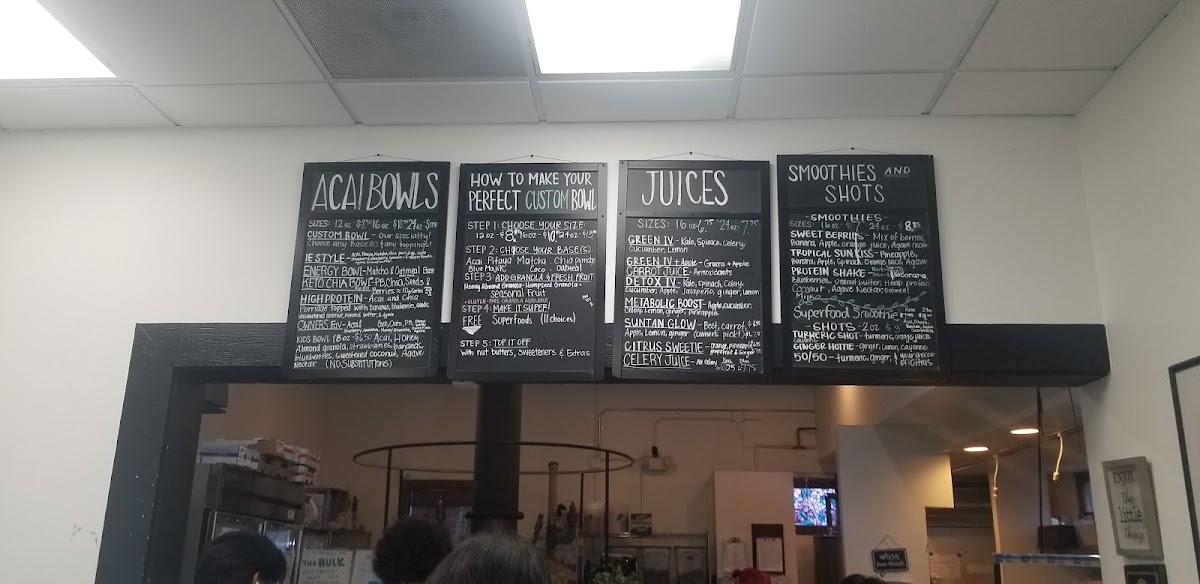 ACAI BOWLS
SIZES: 12 oz 16 oz 24 oz
CUSTOM BOWL - Our specialty!
Choose any Base(s) & any toppings!
IE STYLE -
ENERGY BOWL - Matcha & Oatmeal Base
KETO CHIA BOWL - PB, Chia, Seeds
Berries
HIGH PROTEIN - Acai and Chia
Porridge topped with bananas, blueberries,
unsweetened coconut, Almond butter, & Agave
OWNERS Fav - Acai
KIDS BOWL (8 oz - $6.50) Acai, Honey
Almond granola, strawberries, bananas,
blueberries, sweetened coconut, Agave
Nectar (NO SUBSTITUTIONS)
HOW TO MAKE YOUR
PERFECT CUSTOM BOWL
STEP 1: CHOOSE YOUR SIZE:
12 oz - 16 oz - 24 oz -
STEP 2: CHOOSE YOUR BASE(S):
Acai Pitaya Matcha Chia porridge
Blue Majik Coco Oatmeal
STEP 3: ADD GRANOLA & FRESH FRUIT
Honey Almond Granola - Hempseed Granola -
Seasonal Fruit
GLUTEN FREE GRANOLA AVAILABLE
STEP 4: MAKE IT SUPER!
FREE Superfoods (11 choices)
STEP 5: TOP IT OFF
with nut butters, sweeteners & Extras
JUICES
SIZES: 16 oz 6.75 24 oz - 7.75
GREEN IV - Kale, Spinach, Celery,
Cucumber, Lemon
GREEN IV + Apple - Greens + Apple
CARROT JUICE - Antioxidants
DETOX IV - Kale, Spinach, Celery,
Cucumber, Apple, Jalapeño, ginger, Lemon
METABOLIC BOOST - Apple, cucumber,
Celery, Lemon, ginger, pineapple
SUNTAN GLOW - Beet, carrot,
Apple, Lemon, ginger (owner's pick)
CITRUS SWEETIE - orange, pineapple
grapefruit & ginger
CELERY JUICE - All Celery
SMOOTHIES AND
SHOTS
- SMOOTHIES -
SIZES: 16 oz 24 oz -
SWEET BERRIES - Mix of berries,
Banana, Apple, orange juice, Agave nectar
TROPICAL SUN KISS - Pineapple,
Banana, Apple, Spinach, Orange Juice, Agave
PROTEIN SHAKE - Banana,
Blueberries, peanut butter, Hemp protein,
Coconut, Agave Nectar, Oatmeal
Milk
Superfood Smoothie
- SHOTS - 2 oz
TURMERIC SHOT - turmeric, orange juice,
GINGER HOTTIE - ginger, Lemon, Cayenne
50/50 - turmeric, ginger, & your choice
of Citrus
THE HULK
WASH
Your Hands
ENJOY
the
Little
things